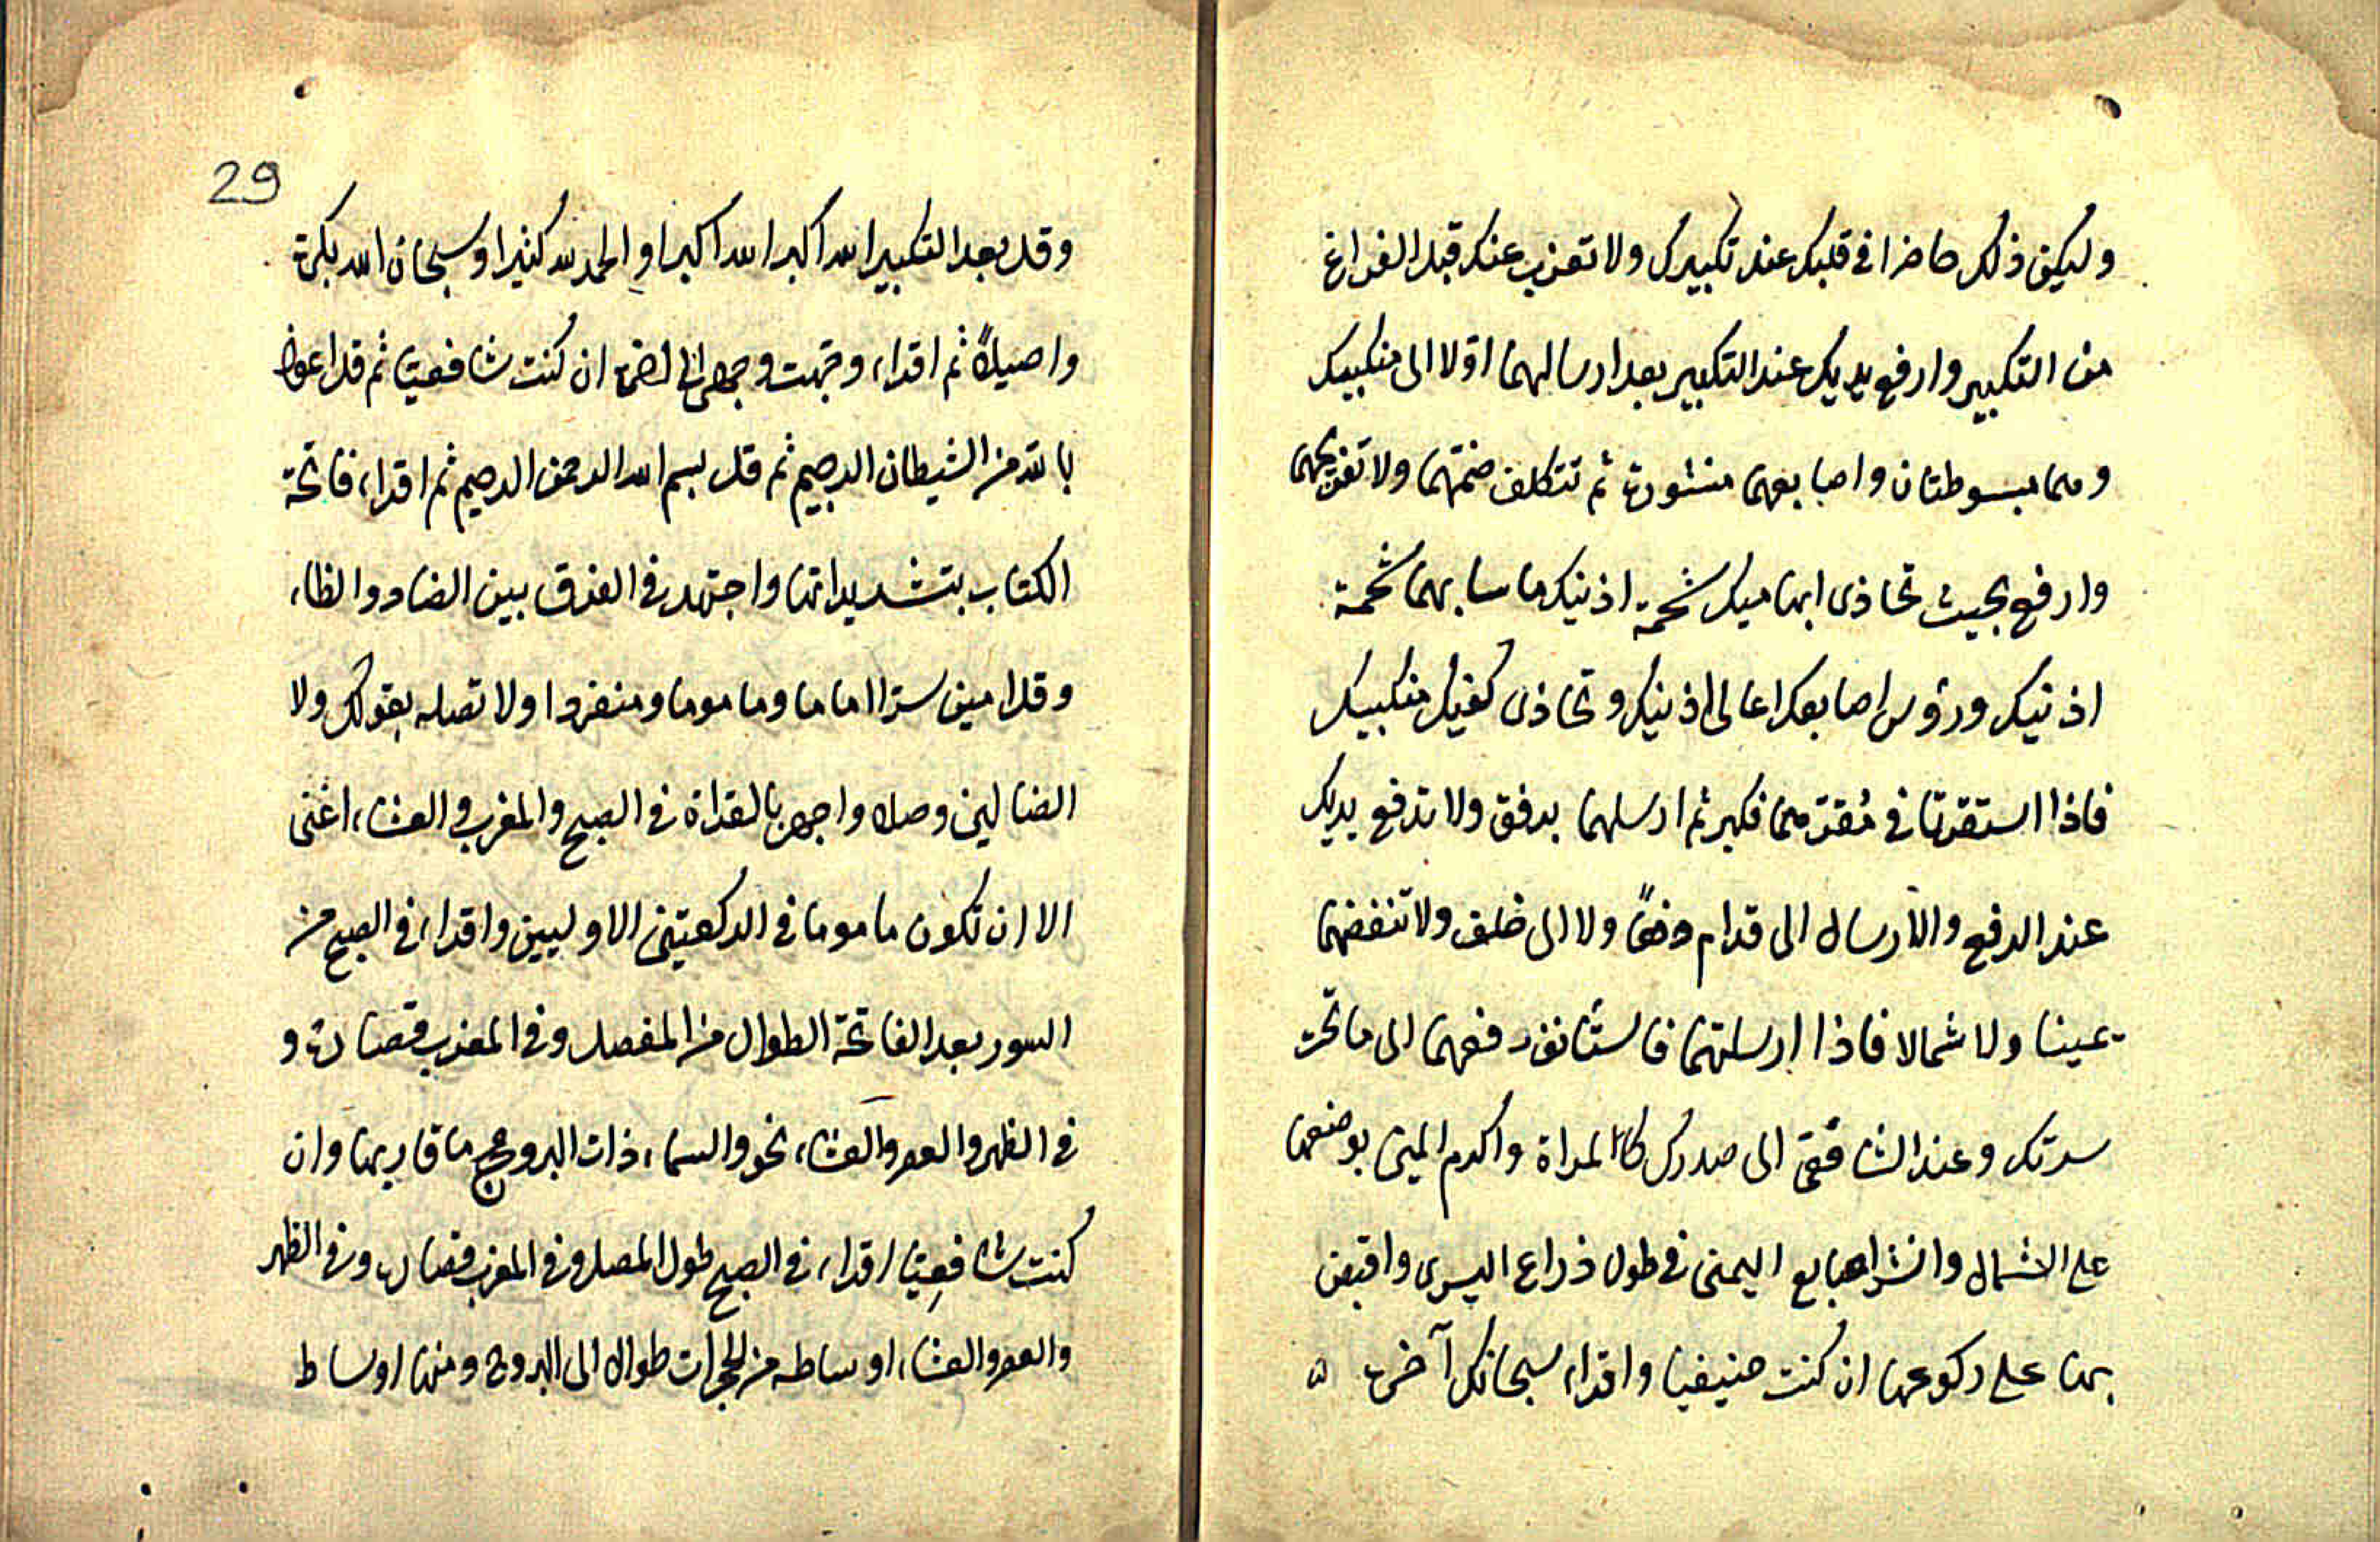 وليكن ذلك حاضرا في قلبك عند تكبيرك ولا تعزب عنك قبل الفراغ
من التكبير وارفع يديك عند التكبير بعد ارسالهما اولا الى منكبيك
وهما مبسوطتان واصابعهما منشورة ثم تتكلف ضمّهما ولا تفريجهما
وارفع بحيث تحاذى ابهاميك شحمة اذنيك ماسا بهما شحمة
اذنيك ورؤس اصابعك اعالى اذنيك وتحاذى كفيك منكبيك
فاذا استقرتا في مقرّهما فكبر ثم ارسلهما برفق ولا تدفع يديك
عند الرفع والارسال الى قدام دفعًا ولا الى خلف ولا تنفضهما
يمينا ولا شمالا فاذا ارسلتهما فاستأنف رفعهما الى ما تحت
سرتك وعند الشافعى الى صدرك كالمراة واكرم اليمنى بوضعها
على الشمال وانشر اصابع اليمنى في طول ذراع اليسرى واقبض
بها على ركوعها ان كنت حنيفيا واقراء سبحانك آخره
29
وقل بعد التكبير الله اكبر الله اكبرا والحمد لله كثيرا وسبحان الله بكرة
واصيلاً ثم اقراء وجّهت وجهى الى اخره ان كنت شافعيّا ثم قل اعوذ
بالله من الشيطان الرجيم ثم قل بسم الله الرحمن الرحيم ثم اقراء فاتحة
الكتاب بتشديداتها واجتهد في الفرق بين الضاد والظاء
وقل امين سرّا اماما وماموما ومنفردا ولا تصله بقولك ولا
الضالين وصلا واجهر بالقراة في الصبح والمغرب والعشاء اعنى
الا ان تكون ماموما في الركعتين الاوليين واقراء في الصبح من
السور بعد الفاتحة الطوال من المفصل وفي المغرب قصاره و
في الظهر والعصر والعشاء نحو والسماء ذات البروج وما قاربها وان
كنت شافعِيّا اقراء في الصبح طول المفصل وفي المغرب قصاره وفي الظهر
والعصر والعشاء اوساطه من الحجرات طواله الى البروج ومنها اوساط